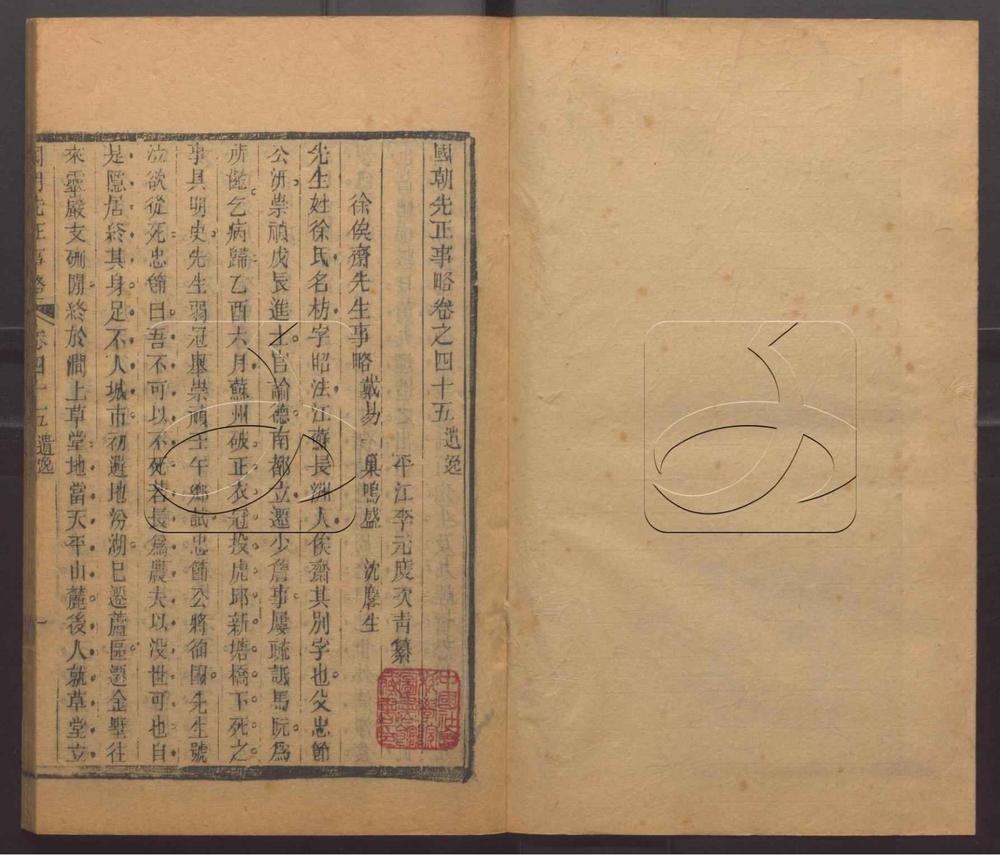 國朝先正事略卷之四十五 遺逸
平江李元度次青纂
徐俟齋先生事略 戴易 巢鳴盛 沈壽生
先生姓徐氏名枋字昭法江蘇長洲人俟齋其別字也父忠節
公汧崇禎戊辰進士官諭德南都立遷少詹事屢疏詆馬阮爲
所齕乞病歸乙酉六月蘇州破正衣冠投虎邱新塘橋下死之
事具明史先生弱冠舉崇禎壬午鄉試忠節公將徇國先生號
泣欲從死忠節曰吾不可以不死若長爲農夫以没世可也自
是隱居終其身足不入城市初避地汾湖已遷蘆區遷金墅往
來靈巖支硎閒終於澗上草堂地當天平山麓後人就草堂立
國朝先正事略 卷四十五 遺逸 一